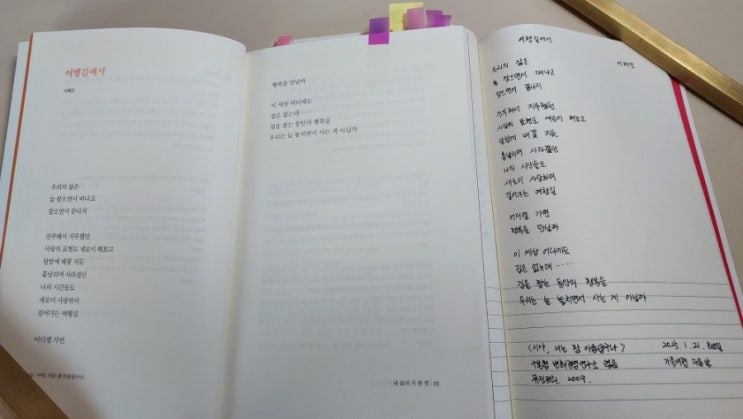 여행길에서
이해인
우리의 삶은
늘 찾으면서 떠나고
찾으면서 끝나지
진부해서 지루했던
사랑의 표현도 새로이 해보고
달밤에 배꽃 지듯
흩날리며 사라졌던
나의 시간들도
새로이 사랑하며
걸어가는 여행길
어디엘 가면
행복을 만날까
이 세상 어디에도
집은 없는데……
집을 찾는 동안의 행복을
우리는 늘 놓치면서 사는 게 아닐까
내 삶의 시 한 편 : 23
여행길에서
이해인
우리의 삶은
늘 찾으면서 떠나고
찾으면서 끝나지
진부해서 지루했던
사랑의 표현도 새로이 해보고
달밤에 배꽃 지듯
흩날리며 사라졌던
나의 시간들도
새로이 사랑하며
걸어가는 여행길
어디엘 가면
행복을 만날까
이 세상 어디에도
집은 없는데……
집을 찾는 동안의 행복을
우리는 늘 놓치면서 사는 게 아닐까
<시야, 너는 참 아름답구나>
2025. 1. 21. 화요일
구본형 변화경영연구소 엮음
가족여행 다음 날
2009.